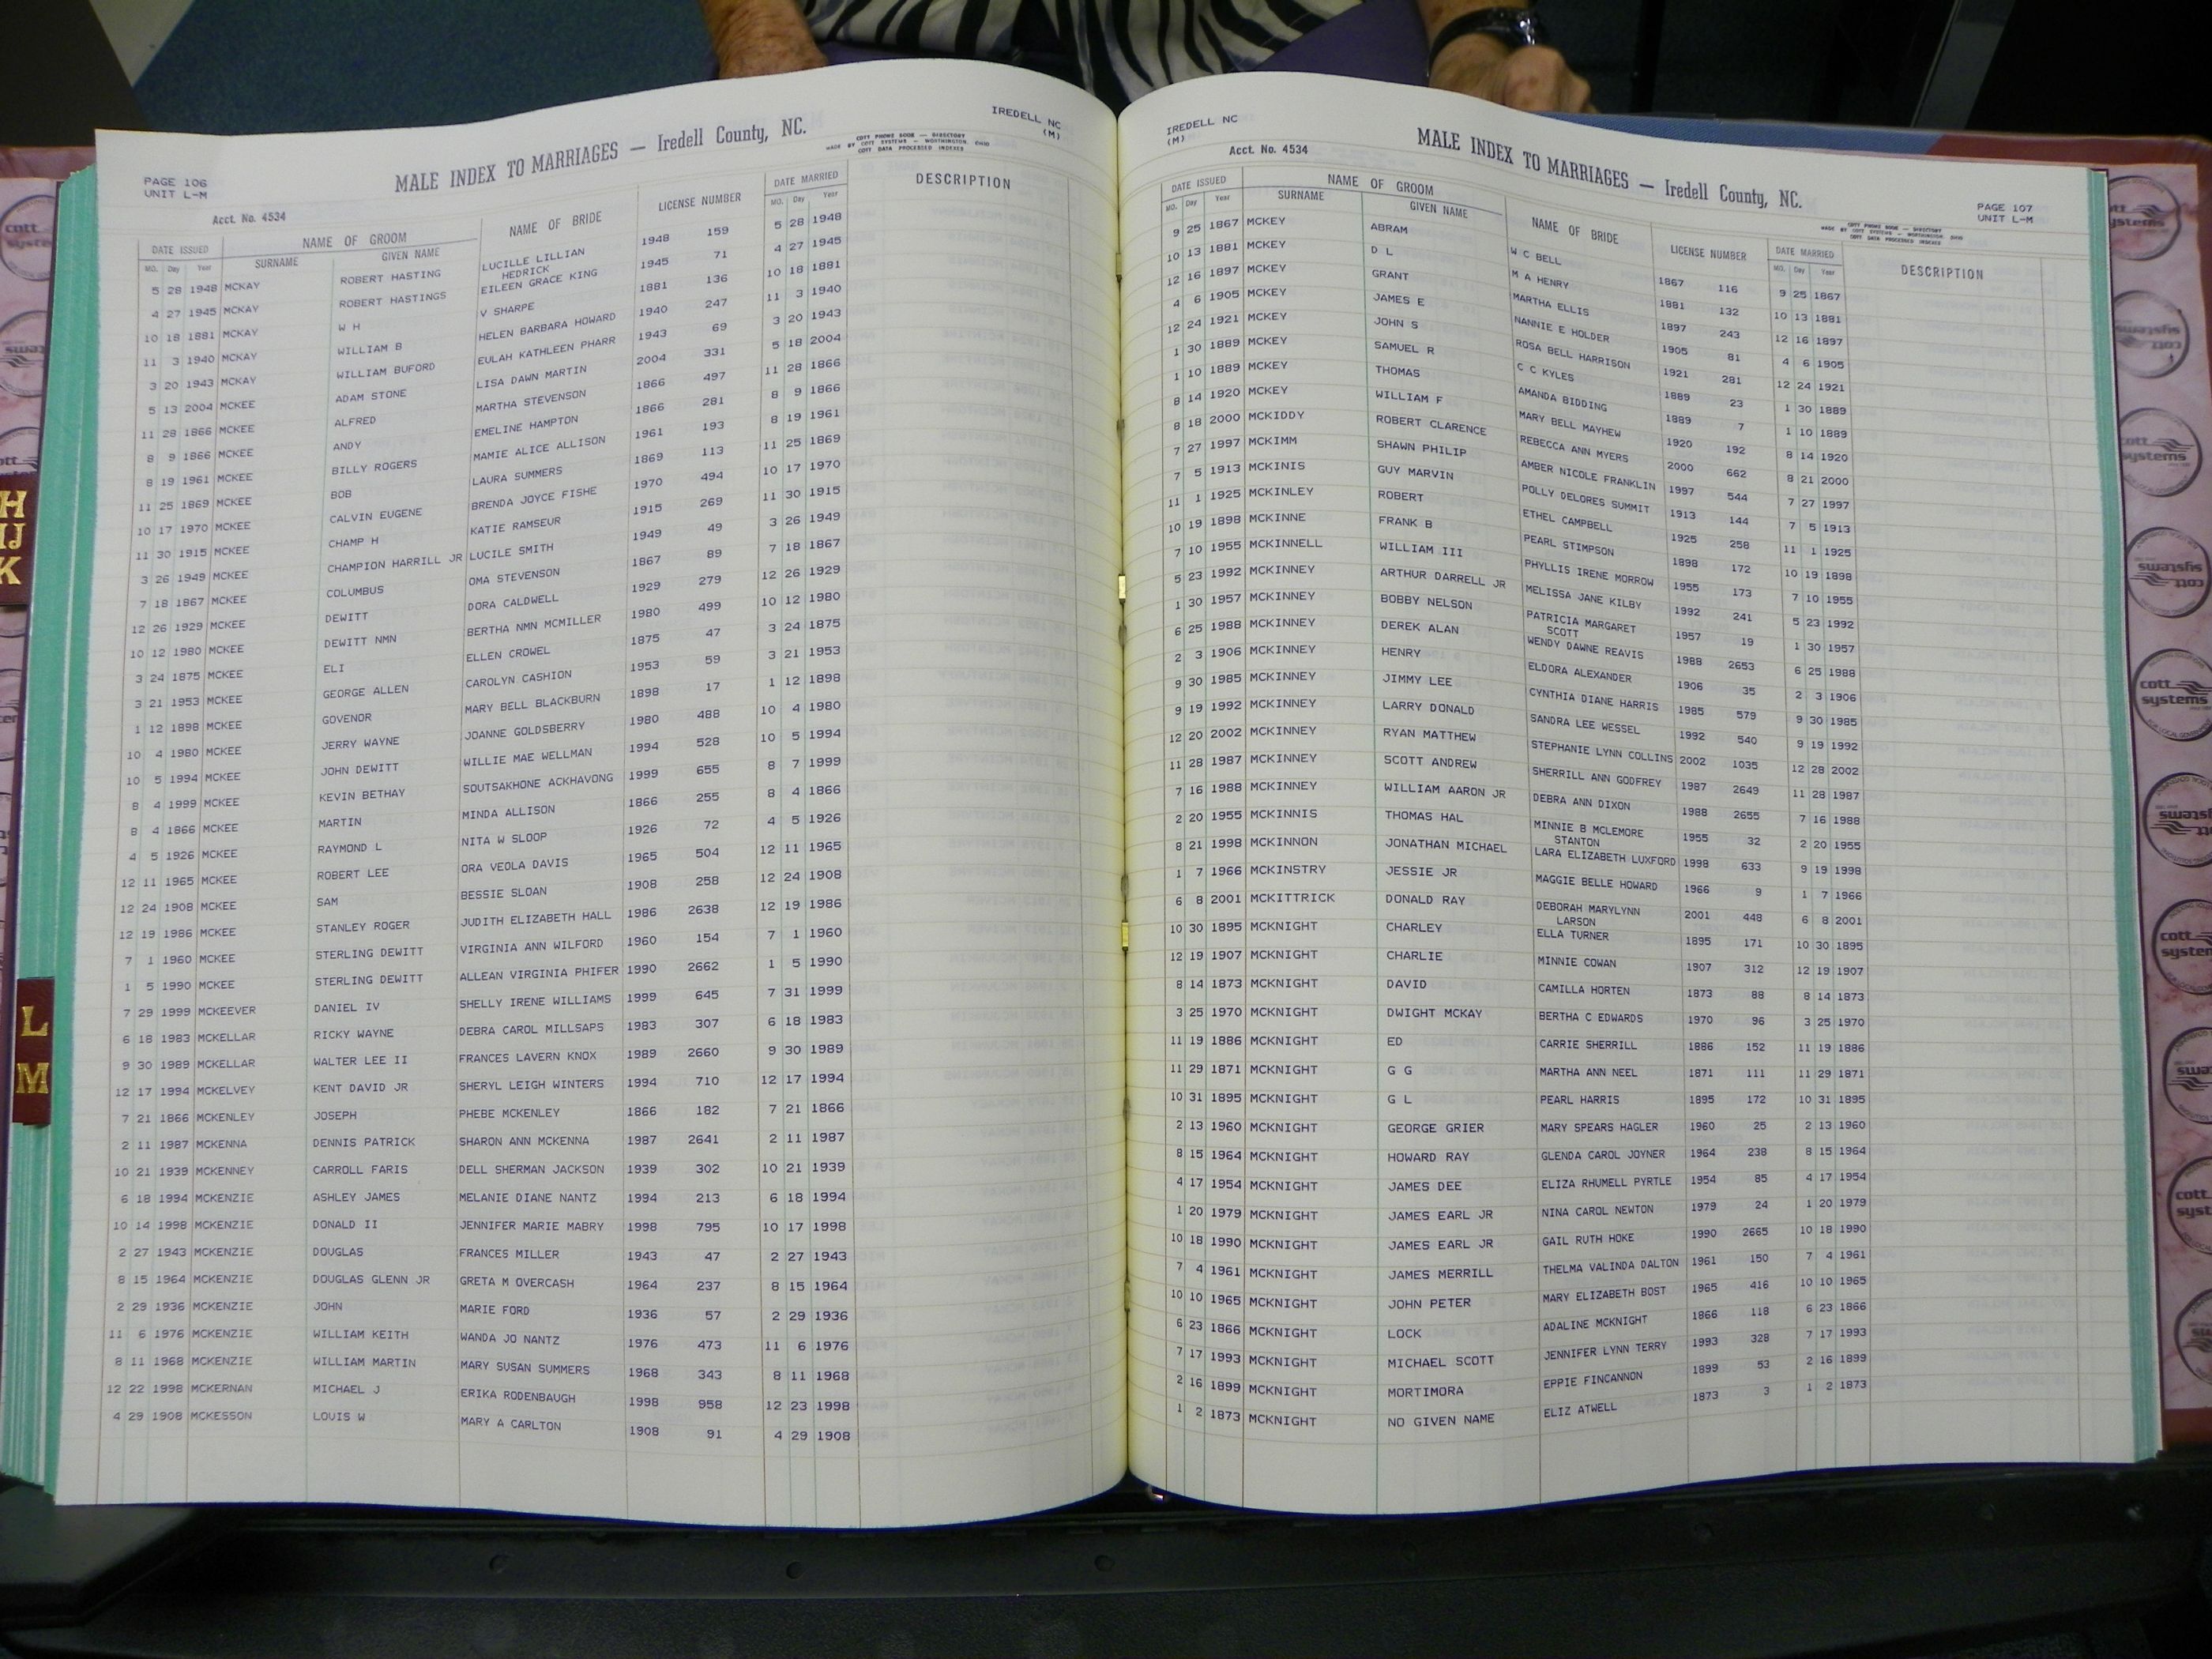 IREDELL NC
(M)
MALE INDEX TO MARRIAGES — Iredell County, NC.
COTT PHONE BOOK — DIRECTORY
MADE BY COTT SYSTEMS — WORTHINGTON, OHIO
COTT DATA PROCESSED INDEXES
PAGE 106
UNIT L-M
Acct. No. 4534
DATE ISSUED NAME OF GROOM NAME OF BRIDE LICENSE NUMBER DATE MARRIED DESCRIPTION
MO. Day Year SURNAME GIVEN NAME MO. Day Year
5 28 1948 MCKAY ROBERT HASTING LUCILLE LILLIAN HEDRICK 1948 159 5 28 1948
4 27 1945 MCKAY ROBERT HASTINGS EILEEN GRACE KING 1945 71 4 27 1945
10 18 1881 MCKAY W H V SHARPE 1881 136 10 18 1881
11 3 1940 MCKAY WILLIAM B HELEN BARBARA HOWARD 1940 247 11 3 1940
3 20 1943 MCKAY WILLIAM BUFORD EULAH KATHLEEN PHARR 1943 69 3 20 1943
5 13 2004 MCKEE ADAM STONE LISA DAWN MARTIN 2004 331 5 18 2004
11 28 1866 MCKEE ALFRED MARTHA STEVENSON 1866 497 11 28 1866
8 9 1866 MCKEE ANDY EMELINE HAMPTON 1866 281 8 9 1866
8 19 1961 MCKEE BILLY ROGERS MAMIE ALICE ALLISON 1961 193 8 19 1961
11 25 1869 MCKEE BOB LAURA SUMMERS 1869 113 11 25 1869
10 17 1970 MCKEE CALVIN EUGENE BRENDA JOYCE FISHE 1970 494 10 17 1970
11 30 1915 MCKEE CHAMP H KATIE RAMSEUR 1915 269 11 30 1915
3 26 1949 MCKEE CHAMPION HARRILL JR LUCILE SMITH 1949 49 3 26 1949
7 18 1867 MCKEE COLUMBUS OMA STEVENSON 1867 89 7 18 1867
12 26 1929 MCKEE DEWITT DORA CALDWELL 1929 279 12 26 1929
10 12 1980 MCKEE DEWITT NMN BERTHA NMN MCMILLER 1980 499 10 12 1980
3 24 1875 MCKEE ELI ELLEN CROWEL 1875 47 3 24 1875
3 21 1953 MCKEE GEORGE ALLEN CAROLYN CASHION 1953 59 3 21 1953
1 12 1898 MCKEE GOVENOR MARY BELL BLACKBURN 1898 17 1 12 1898
10 4 1980 MCKEE JERRY WAYNE JOANNE GOLDSBERRY 1980 488 10 4 1980
10 5 1994 MCKEE JOHN DEWITT WILLIE MAE WELLMAN 1994 528 10 5 1994
8 4 1999 MCKEE KEVIN BETHAY SOUTSAKHONE ACKHAVONG 1999 655 8 7 1999
8 4 1866 MCKEE MARTIN MINDA ALLISON 1866 255 8 4 1866
4 5 1926 MCKEE RAYMOND L NITA W SLOOP 1926 72 4 5 1926
12 11 1965 MCKEE ROBERT LEE ORA VEOLA DAVIS 1965 504 12 11 1965
12 24 1908 MCKEE SAM BESSIE SLOAN 1908 258 12 24 1908
12 19 1986 MCKEE STANLEY ROGER JUDITH ELIZABETH HALL 1986 2638 12 19 1986
7 1 1960 MCKEE STERLING DEWITT VIRGINIA ANN WILFORD 1960 154 7 1 1960
1 5 1990 MCKEE STERLING DEWITT ALLEAN VIRGINIA PHIFER 1990 2662 1 5 1990
7 29 1999 MCKEEVER DANIEL IV SHELLY IRENE WILLIAMS 1999 645 7 31 1999
6 18 1983 MCKELLAR RICKY WAYNE DEBRA CAROL MILLSAPS 1983 307 6 18 1983
9 30 1989 MCKELLAR WALTER LEE II FRANCES LAVERN KNOX 1989 2660 9 30 1989
12 17 1994 MCKELVEY KENT DAVID JR SHERYL LEIGH WINTERS 1994 710 12 17 1994
7 21 1866 MCKENLEY JOSEPH PHEBE MCKENLEY 1866 182 7 21 1866
2 11 1987 MCKENNA DENNIS PATRICK SHARON ANN MCKENNA 1987 2641 2 11 1987
10 21 1939 MCKENNEY CARROLL FARIS DELL SHERMAN JACKSON 1939 302 10 21 1939
6 18 1994 MCKENZIE ASHLEY JAMES MELANIE DIANE NANTZ 1994 213 6 18 1994
10 14 1998 MCKENZIE DONALD II JENNIFER MARIE MABRY 1998 795 10 17 1998
2 27 1943 MCKENZIE DOUGLAS FRANCES MILLER 1943 47 2 27 1943
8 15 1964 MCKENZIE DOUGLAS GLENN JR GRETA M OVERCASH 1964 237 8 15 1964
2 29 1936 MCKENZIE JOHN MARIE FORD 1936 57 2 29 1936
11 6 1976 MCKENZIE WILLIAM KEITH WANDA JO NANTZ 1976 473 11 6 1976
8 11 1968 MCKENZIE WILLIAM MARTIN MARY SUSAN SUMMERS 1968 343 8 11 1968
12 22 1998 MCKERNAN MICHAEL J ERIKA RODENBAUGH 1998 958 12 23 1998
4 29 1908 MCKESSON LOUIS W MARY A CARLTON 1908 91 4 29 1908
IREDELL NC
(M)
Acct. No. 4534
MALE INDEX TO MARRIAGES — Iredell County, NC.
COTT PHONE BOOK — DIRECTORY
MADE BY COTT SYSTEMS — WORTHINGTON, OHIO
COTT DATA PROCESSED INDEXES
PAGE 107
UNIT L-M
DATE ISSUED NAME OF GROOM NAME OF BRIDE LICENSE NUMBER DATE MARRIED DESCRIPTION
MO. Day Year SURNAME GIVEN NAME MO. Day Year
9 25 1867 MCKEY ABRAM W C BELL 1867 116 9 25 1867
10 13 1881 MCKEY D L M A HENRY 1881 132 10 13 1881
12 16 1897 MCKEY GRANT MARTHA ELLIS 1897 243 12 16 1897
4 6 1905 MCKEY JAMES E NANNIE E HOLDER 1905 81 4 6 1905
12 24 1921 MCKEY JOHN S ROSA BELL HARRISON 1921 281 12 24 1921
1 30 1889 MCKEY SAMUEL R C C KYLES 1889 23 1 30 1889
1 10 1889 MCKEY THOMAS AMANDA BIDDING 1889 7 1 10 1889
8 14 1920 MCKEY WILLIAM F MARY BELL MAYHEW 1920 192 8 14 1920
8 18 2000 MCKIDDY ROBERT CLARENCE REBECCA ANN MYERS 2000 662 8 21 2000
7 27 1997 MCKIMM SHAWN PHILIP AMBER NICOLE FRANKLIN 1997 544 7 27 1997
7 5 1913 MCKINIS GUY MARVIN POLLY DELORES SUMMIT 1913 144 7 5 1913
11 1 1925 MCKINLEY ROBERT ETHEL CAMPBELL 1925 258 11 1 1925
10 19 1898 MCKINNE FRANK B PEARL STIMPSON 1898 172 10 19 1898
7 10 1955 MCKINNELL WILLIAM III PHYLLIS IRENE MORROW 1955 173 7 10 1955
5 23 1992 MCKINNEY ARTHUR DARRELL JR MELISSA JANE KILBY 1992 241 5 23 1992
1 30 1957 MCKINNEY BOBBY NELSON PATRICIA MARGARET SCOTT 1957 19 1 30 1957
6 25 1988 MCKINNEY DEREK ALAN WENDY DAWNE REAVIS 1988 2653 6 25 1988
2 3 1906 MCKINNEY HENRY ELDORA ALEXANDER 1906 35 2 3 1906
9 30 1985 MCKINNEY JIMMY LEE CYNTHIA DIANE HARRIS 1985 579 9 30 1985
9 19 1992 MCKINNEY LARRY DONALD SANDRA LEE WESSEL 1992 540 9 19 1992
12 20 2002 MCKINNEY RYAN MATTHEW STEPHANIE LYNN COLLINS 2002 1035 12 28 2002
11 28 1987 MCKINNEY SCOTT ANDREW SHERRILL ANN GODFREY 1987 2649 11 28 1987
7 16 1988 MCKINNEY WILLIAM AARON JR DEBRA ANN DIXON 1988 2655 7 16 1988
2 20 1955 MCKINNIS THOMAS HAL MINNIE B MCLEMORE STANTON 1955 32 2 20 1955
8 21 1998 MCKINNON JONATHAN MICHAEL LARA ELIZABETH LUXFORD 1998 633 9 19 1998
1 7 1966 MCKINSTRY JESSIE JR MAGGIE BELLE HOWARD 1966 9 1 7 1966
6 8 2001 MCKITTRICK DONALD RAY DEBORAH MARYLYNN LARSON 2001 448 6 8 2001
10 30 1895 MCKNIGHT CHARLEY ELLA TURNER 1895 171 10 30 1895
12 19 1907 MCKNIGHT CHARLIE MINNIE COWAN 1907 312 12 19 1907
8 14 1873 MCKNIGHT DAVID CAMILLA HORTEN 1873 88 8 14 1873
3 25 1970 MCKNIGHT DWIGHT MCKAY BERTHA C EDWARDS 1970 96 3 25 1970
11 19 1886 MCKNIGHT ED CARRIE SHERRILL 1886 152 11 19 1886
11 29 1871 MCKNIGHT G G MARTHA ANN NEEL 1871 111 11 29 1871
10 31 1895 MCKNIGHT G L PEARL HARRIS 1895 172 10 31 1895
2 13 1960 MCKNIGHT GEORGE GRIER MARY SPEARS HAGLER 1960 25 2 13 1960
8 15 1964 MCKNIGHT HOWARD RAY GLENDA CAROL JOYNER 1964 238 8 15 1964
4 17 1954 MCKNIGHT JAMES DEE ELIZA RHUMELL PYRTLE 1954 85 4 17 1954
1 20 1979 MCKNIGHT JAMES EARL JR NINA CAROL NEWTON 1979 24 1 20 1979
10 18 1990 MCKNIGHT JAMES EARL JR GAIL RUTH HOKE 1990 2665 10 18 1990
7 4 1961 MCKNIGHT JAMES MERRILL THELMA VALINDA DALTON 1961 150 7 4 1961
10 10 1965 MCKNIGHT JOHN PETER MARY ELIZABETH BOST 1965 416 10 10 1965
6 23 1866 MCKNIGHT LOCK ADALINE MCKNIGHT 1866 118 6 23 1866
7 17 1993 MCKNIGHT MICHAEL SCOTT JENNIFER LYNN TERRY 1993 328 7 17 1993
2 16 1899 MCKNIGHT MORTIMORA EPPIE FINCANNON 1899 53 2 16 1899
1 2 1873 MCKNIGHT NO GIVEN NAME ELIZ ATWELL 1873 3 1 2 1873
H
IJ
K
L
M
cott
systems